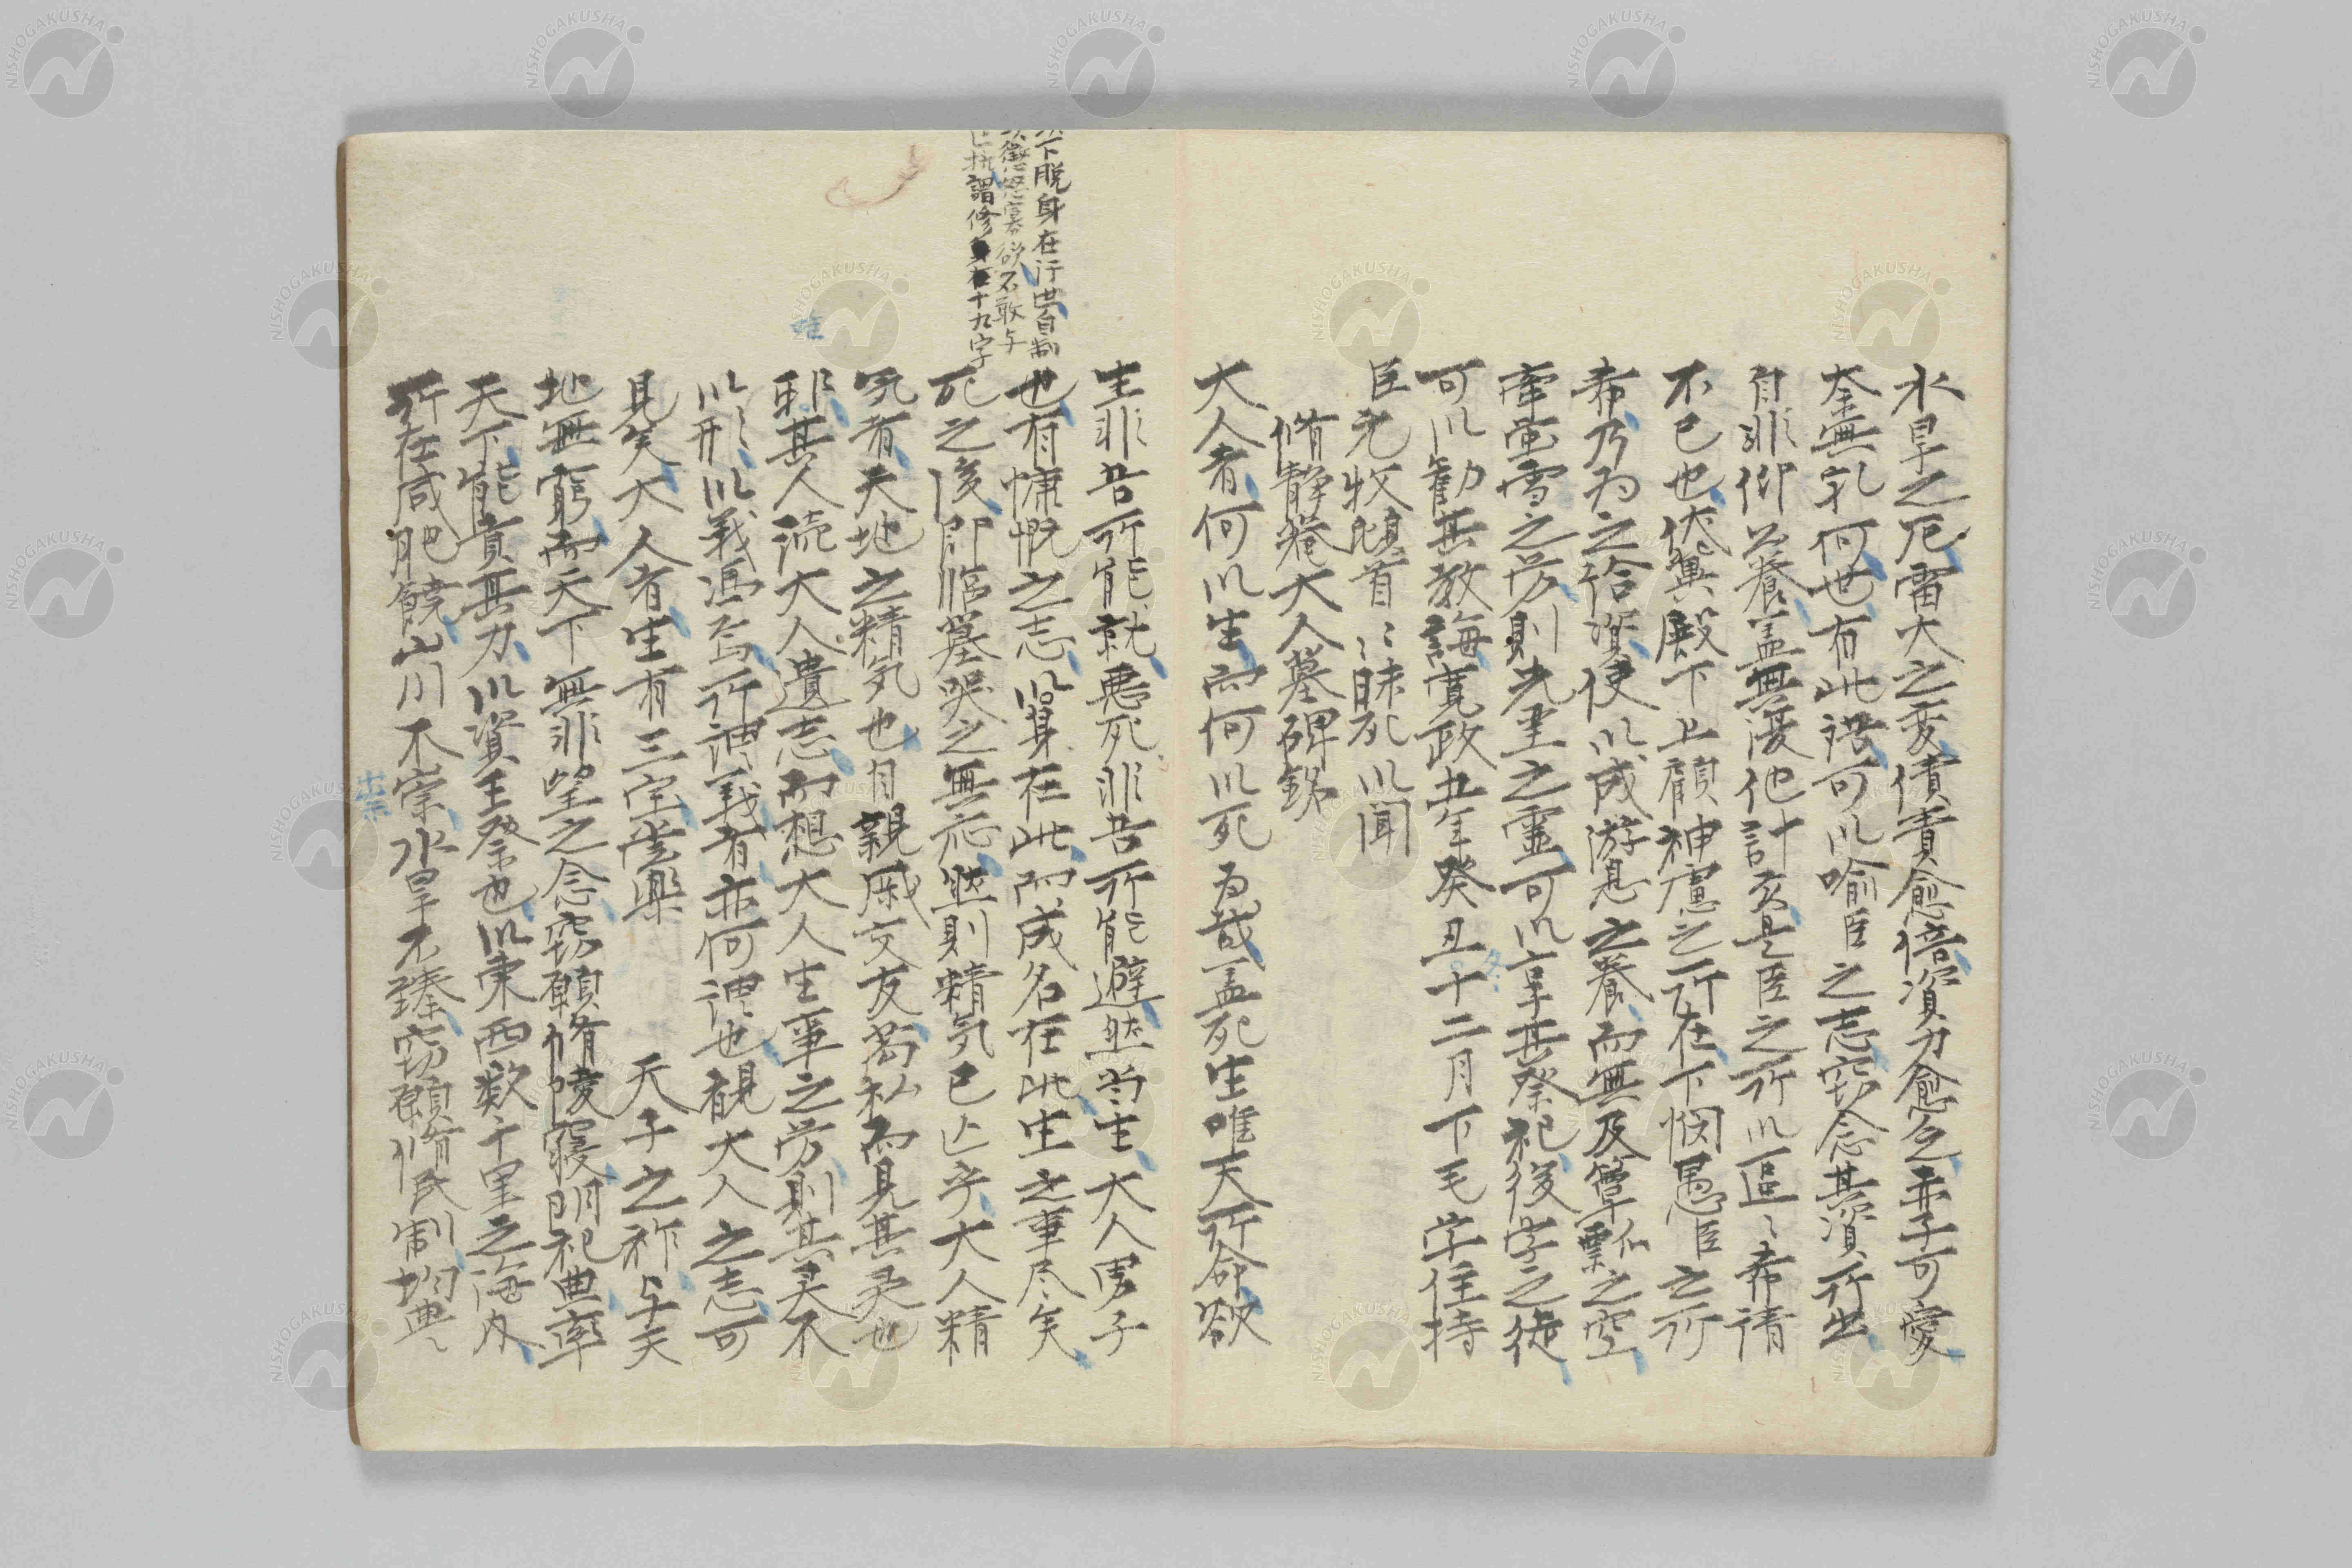 水旱之厄雷火之変債責愈倍資力愈乞赤子可愛
奎無乳何也有此譬可以喩臣之志窃念其資所出
自非仰公養盖無復他計玄是臣之所以區〻希請
不已也伏冀殿下上顧神慮之所在下憫愚臣之所
希乃為之給資使以成游息之養而無及簞瓢之空
雪之労則先聖之靈可以享其祭祀後学之徒
可以勧其教誨寛政五年癸丑十二月下毛学住持
臣元牧頓首〻昧死以聞
脩静菴大人墓碑銘
大人者何以生而何以死為哉盖死生唯天所命欲
生非吾所能就悪死非吾所能避然当生大人男子
也有慷慨之志以身在此而成名在此生之事尽矣
死之後即臨墓哭之無応然則精気已亾乎大人精
気者天地之精気也自親戚交友為私而見其灵也
邪其人読大人遺志而想大人生事之労則其灵不
以形以義馮焉所謂義者亦何謂也観大人之志可
見矣大人者生有三宝並楽 天子之祚与天
地無窮而天下無非望之念窃願脩陵寝明祀典率
天下能貢其力以資王祭也以東西数千里之海内
所在咸肥饒山川不崇水旱不臻窃願脩民制均典
下脱身在行典自制
徴忿窒欲不敢与
謂修身在十九字
唯
崇